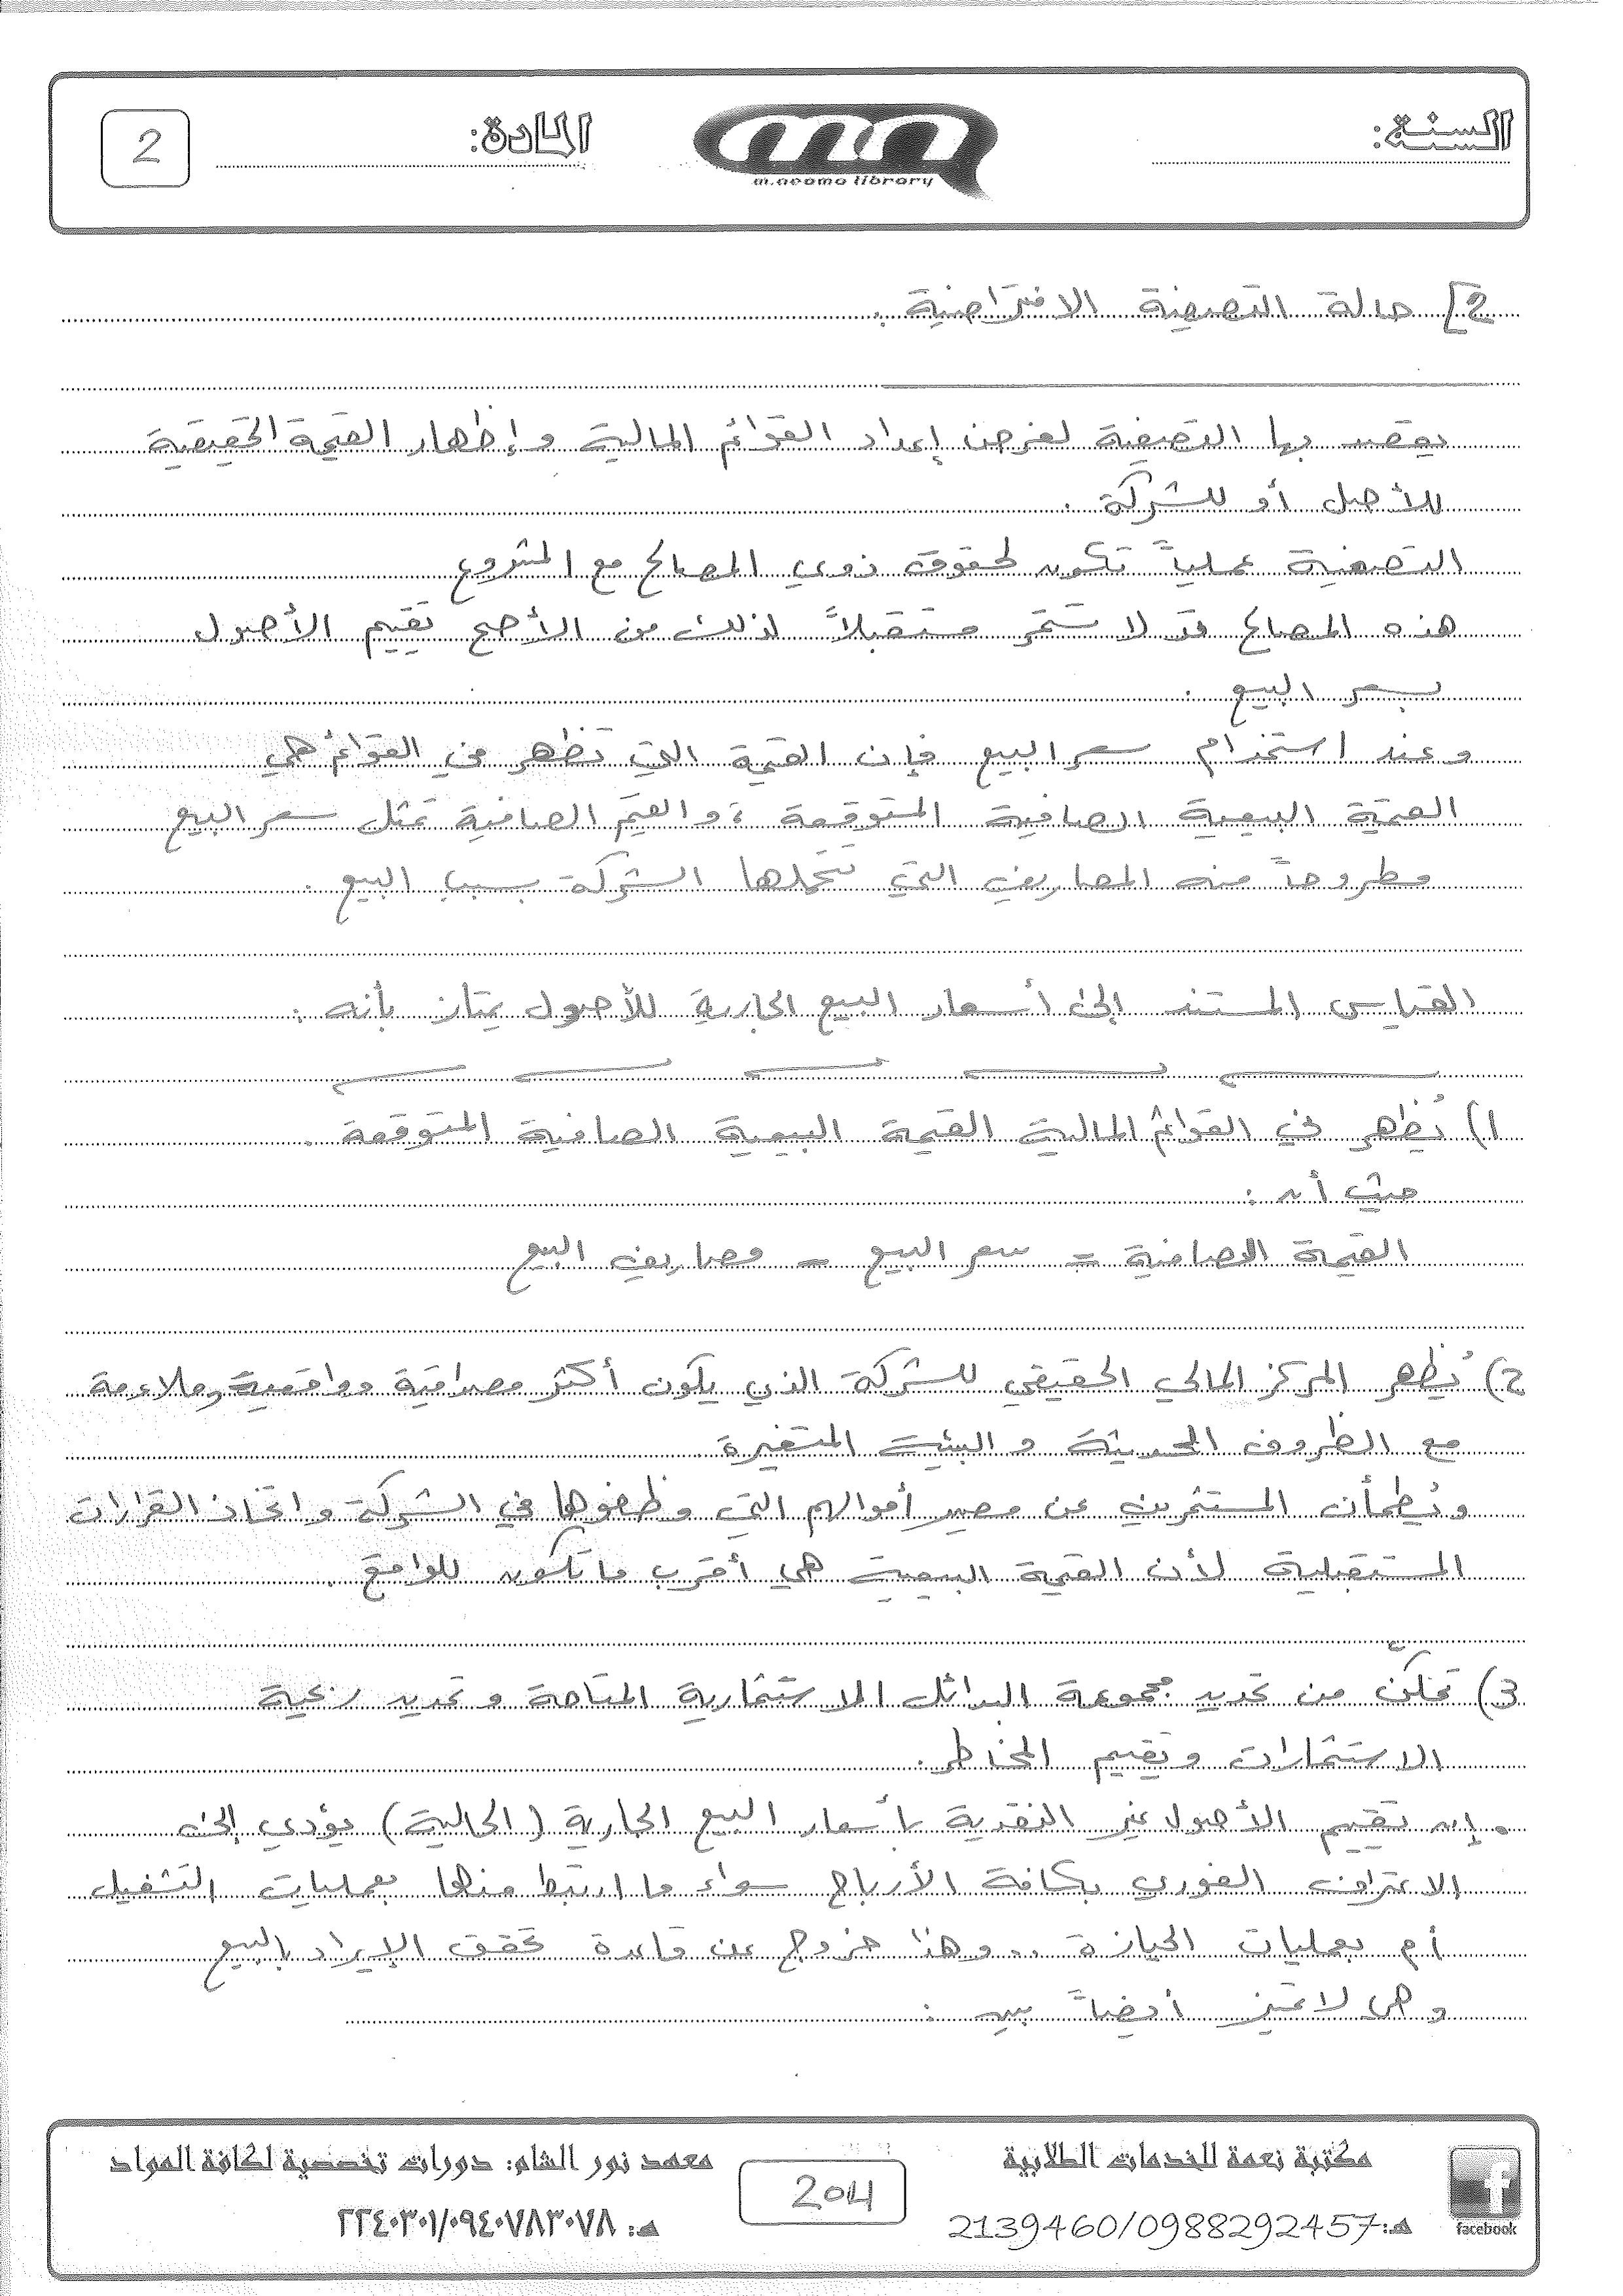 السنة:
m.neama library
المادة:
2
2] حالة التصفية الافتراضية .
يقصد بها التصفية لغرض إعداد القوائم المالية وإظهار القيمة الحقيقية
للأصل أو للشركة .
التصفية عملياً تكون لحقوق ذوي المصالح مع المشروع
هذه المصالح قد لا تستمر مستقبلاً لذلك من الأصح تقييم الأصول
بسعر البيع .
وعند استخدام سعر البيع فإن القيمة التي تظهر في القوائم هي
القيمة البيعية الصافية المتوقعة ، والقيم الصافية تمثل سعر البيع
مطروحاً منه المصاريف التي تتحملها الشركة بسبب البيع .
القياس المستند إلى أسعار البيع الجارية للأصول يمتاز بأنه :
1) يُظهر في القوائم المالية القيمة البيعية الصافية المتوقعة .
حيث أن :
القيمة الصافية = سعر البيع - مصاريف البيع
2) يُظهر المركز المالي الحقيقي للشركة الذي يكون أكثر مصداقية وواقعية وملاءمة
مع الظروف الحديثة والبيئة المتغيرة
ويُطمأن المستثمرين عن مصير أموالهم التي وظفوها في الشركة واتخاذ القرارات
المستقبلية لأن القيمة البيعية هي أقرب ما تكون للواقع .
3) تمكّن من تحديد مجموعة البدائل الاستثمارية المتاحة وتحديد ربحية
الاستثمارات وتقييم المخاطر .
. إن تقييم الأصول غير النقدية بأسعار البيع الجارية (الحالية) يؤدي إلى
الاعتراف الفوري بكافة الأرباح سواء ما ارتبط منها بعمليات التشغيل
أم بعمليات الحيازة .. وهذا خروج عن قاعدة تحقق الإيراد بالبيع
وهي لا تميز أيضاً بين :
مكتبة نعمة للخدمات الطلابية
هـ: 2139460/0988292457
facebook
204
معهد نور الشام: دورات تخصصية لكافة المواد
هـ: ٢٢٤٠٣٠١/٠٩٤٠٧٨٣٠٧٨